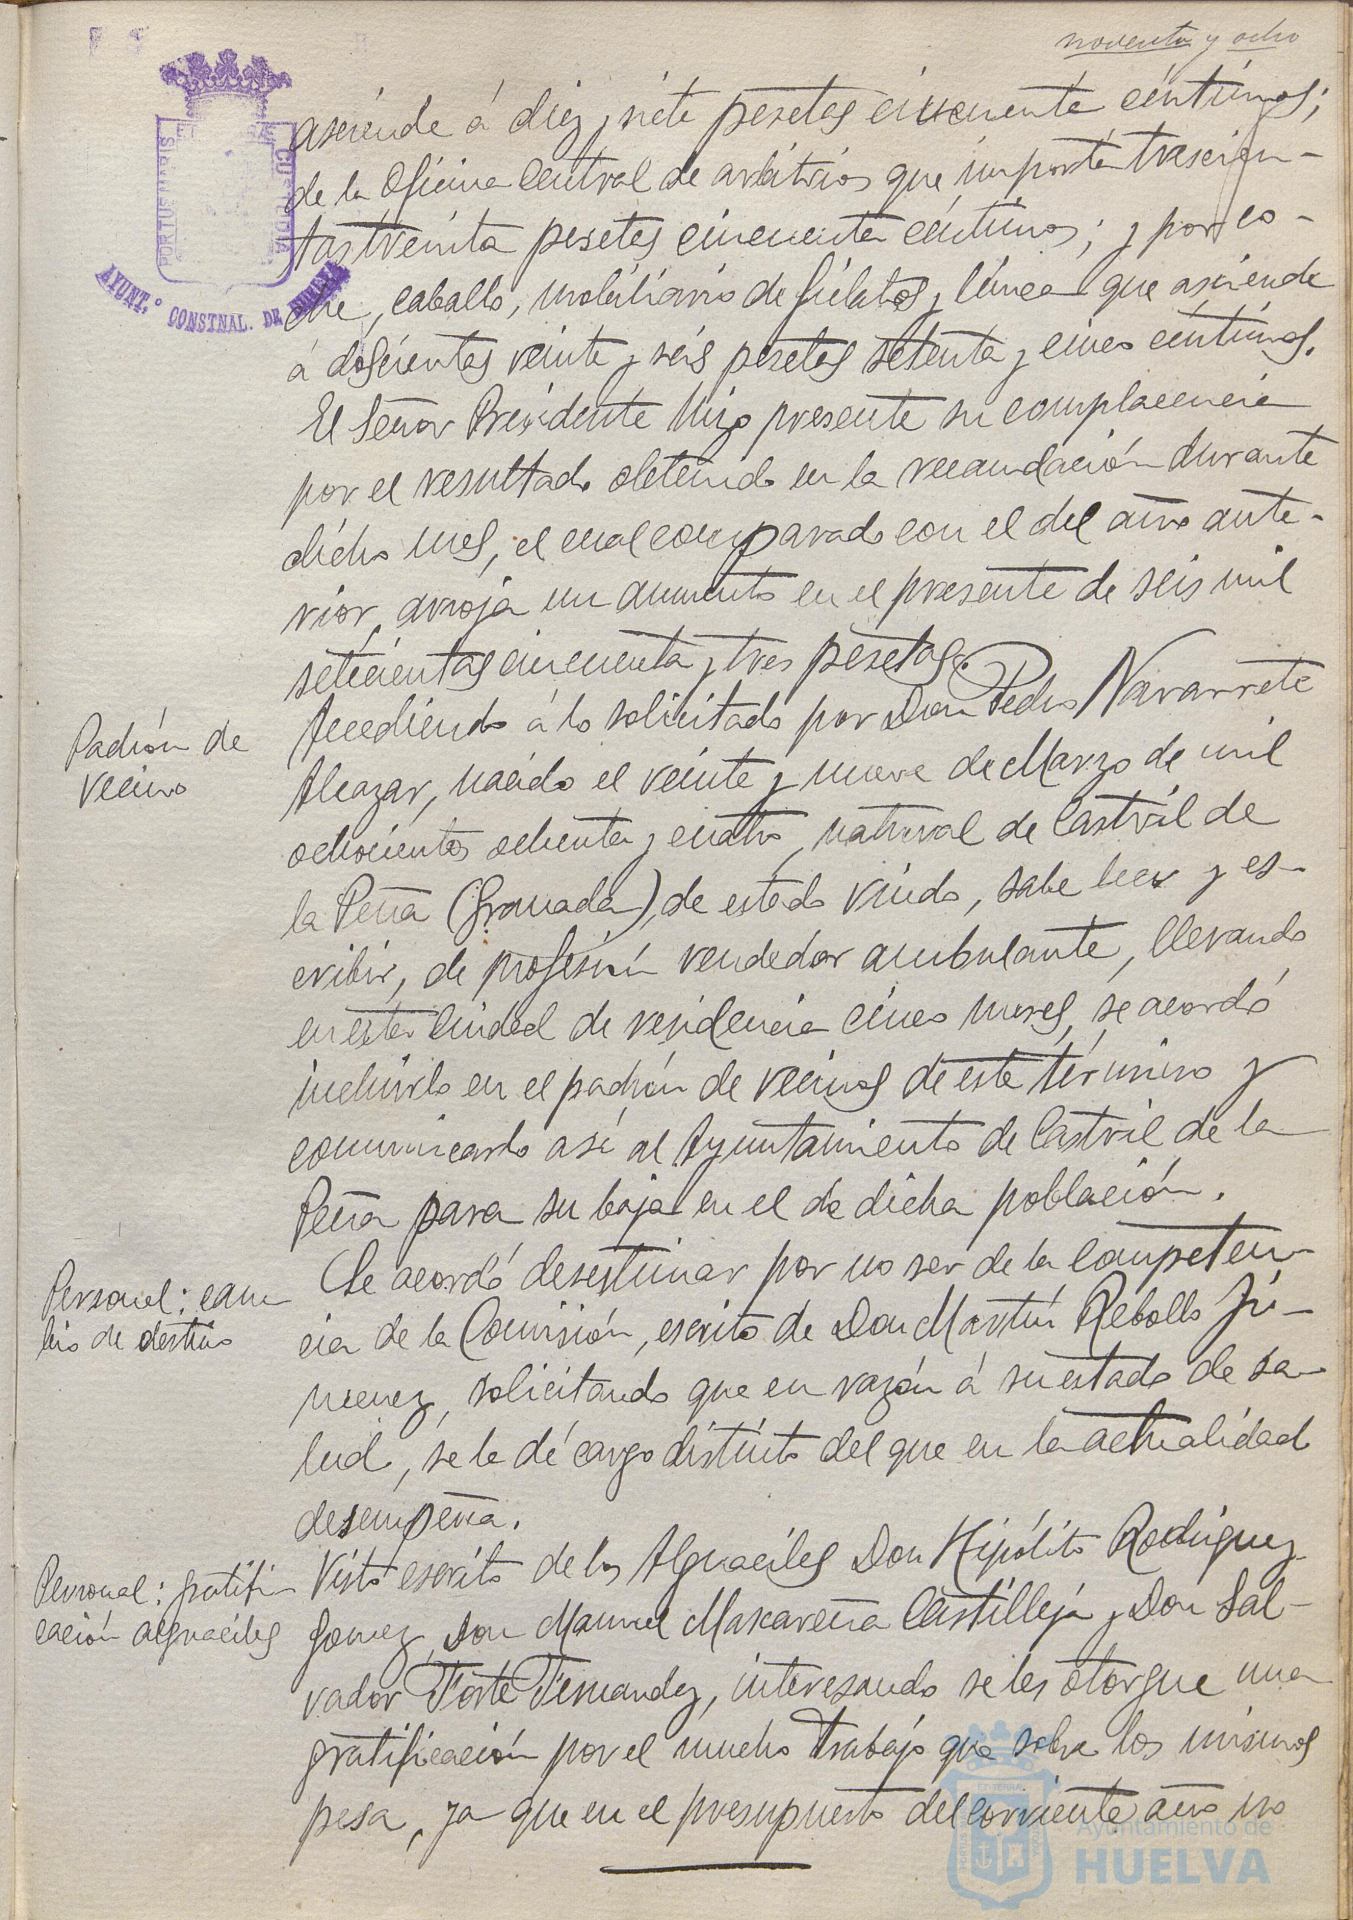 noventa y ocho
asciende á diez y siete pesetas cincuenta céntimos;
de la Oficina Central de arbitrios que importa trescien-
tas treinta pesetas cincuenta céntimos; y por co-
che, caballo, mobiliario de fielatos y línea que asciende
á doscientas veinte y seis pesetas setenta y cinco céntimos.
El Señor Presidente hizo presente su complacencia
por el resultado obtenido en la recaudación durante
dicho mes, el cual comparado con el del año ante-
rior, arroja un aumento en el presente de seis mil
setecientas cincuenta y tres pesetas.
Padrón de
vecino
Accediendo á lo solicitado por Don Pedro Navarrete
Alcazar, nacido el veinte y nueve de Marzo de mil
ochocientos ochenta y cuatro, natural de Castril de
la Peña (Granada), de estado viudo, sabe leer y es-
cribir, de profesión vendedor ambulante, llevando
en esta Ciudad de residencia cinco meses, se acordó
incluirlo en el padrón de vecinos de este término y
comunicarlo así al Ayuntamiento de Castril de la
Peña para su baja en el de dicha población.
Personal: cam
bio de destino
Se acordó desestimar por no ser de la competen-
cia de la Comisión, escrito de Don Martín Rebollo Ji-
menez, solicitando que en razón á su estado de sa-
lud, se le dé cargo distinto del que en la actualidad
desempeña.
Personal: gratifi-
cación alguaciles
Visto escrito de los Alguaciles Don Hipólito Rodriguez
Gomez, Don Manuel Mascareña Castilleja y Don Sal-
vador Forte Fernandez, interesando se les otorgue una
gratificación por el mucho trabajo que sobre los mismos
pesa, ya que en el presupuesto del corriente año no
PORTUS MARIS ET TERRAE CUSTODIA
AYUNT.º CONSTNAL. DE HUELVA
Ayuntamiento de
HUELVA